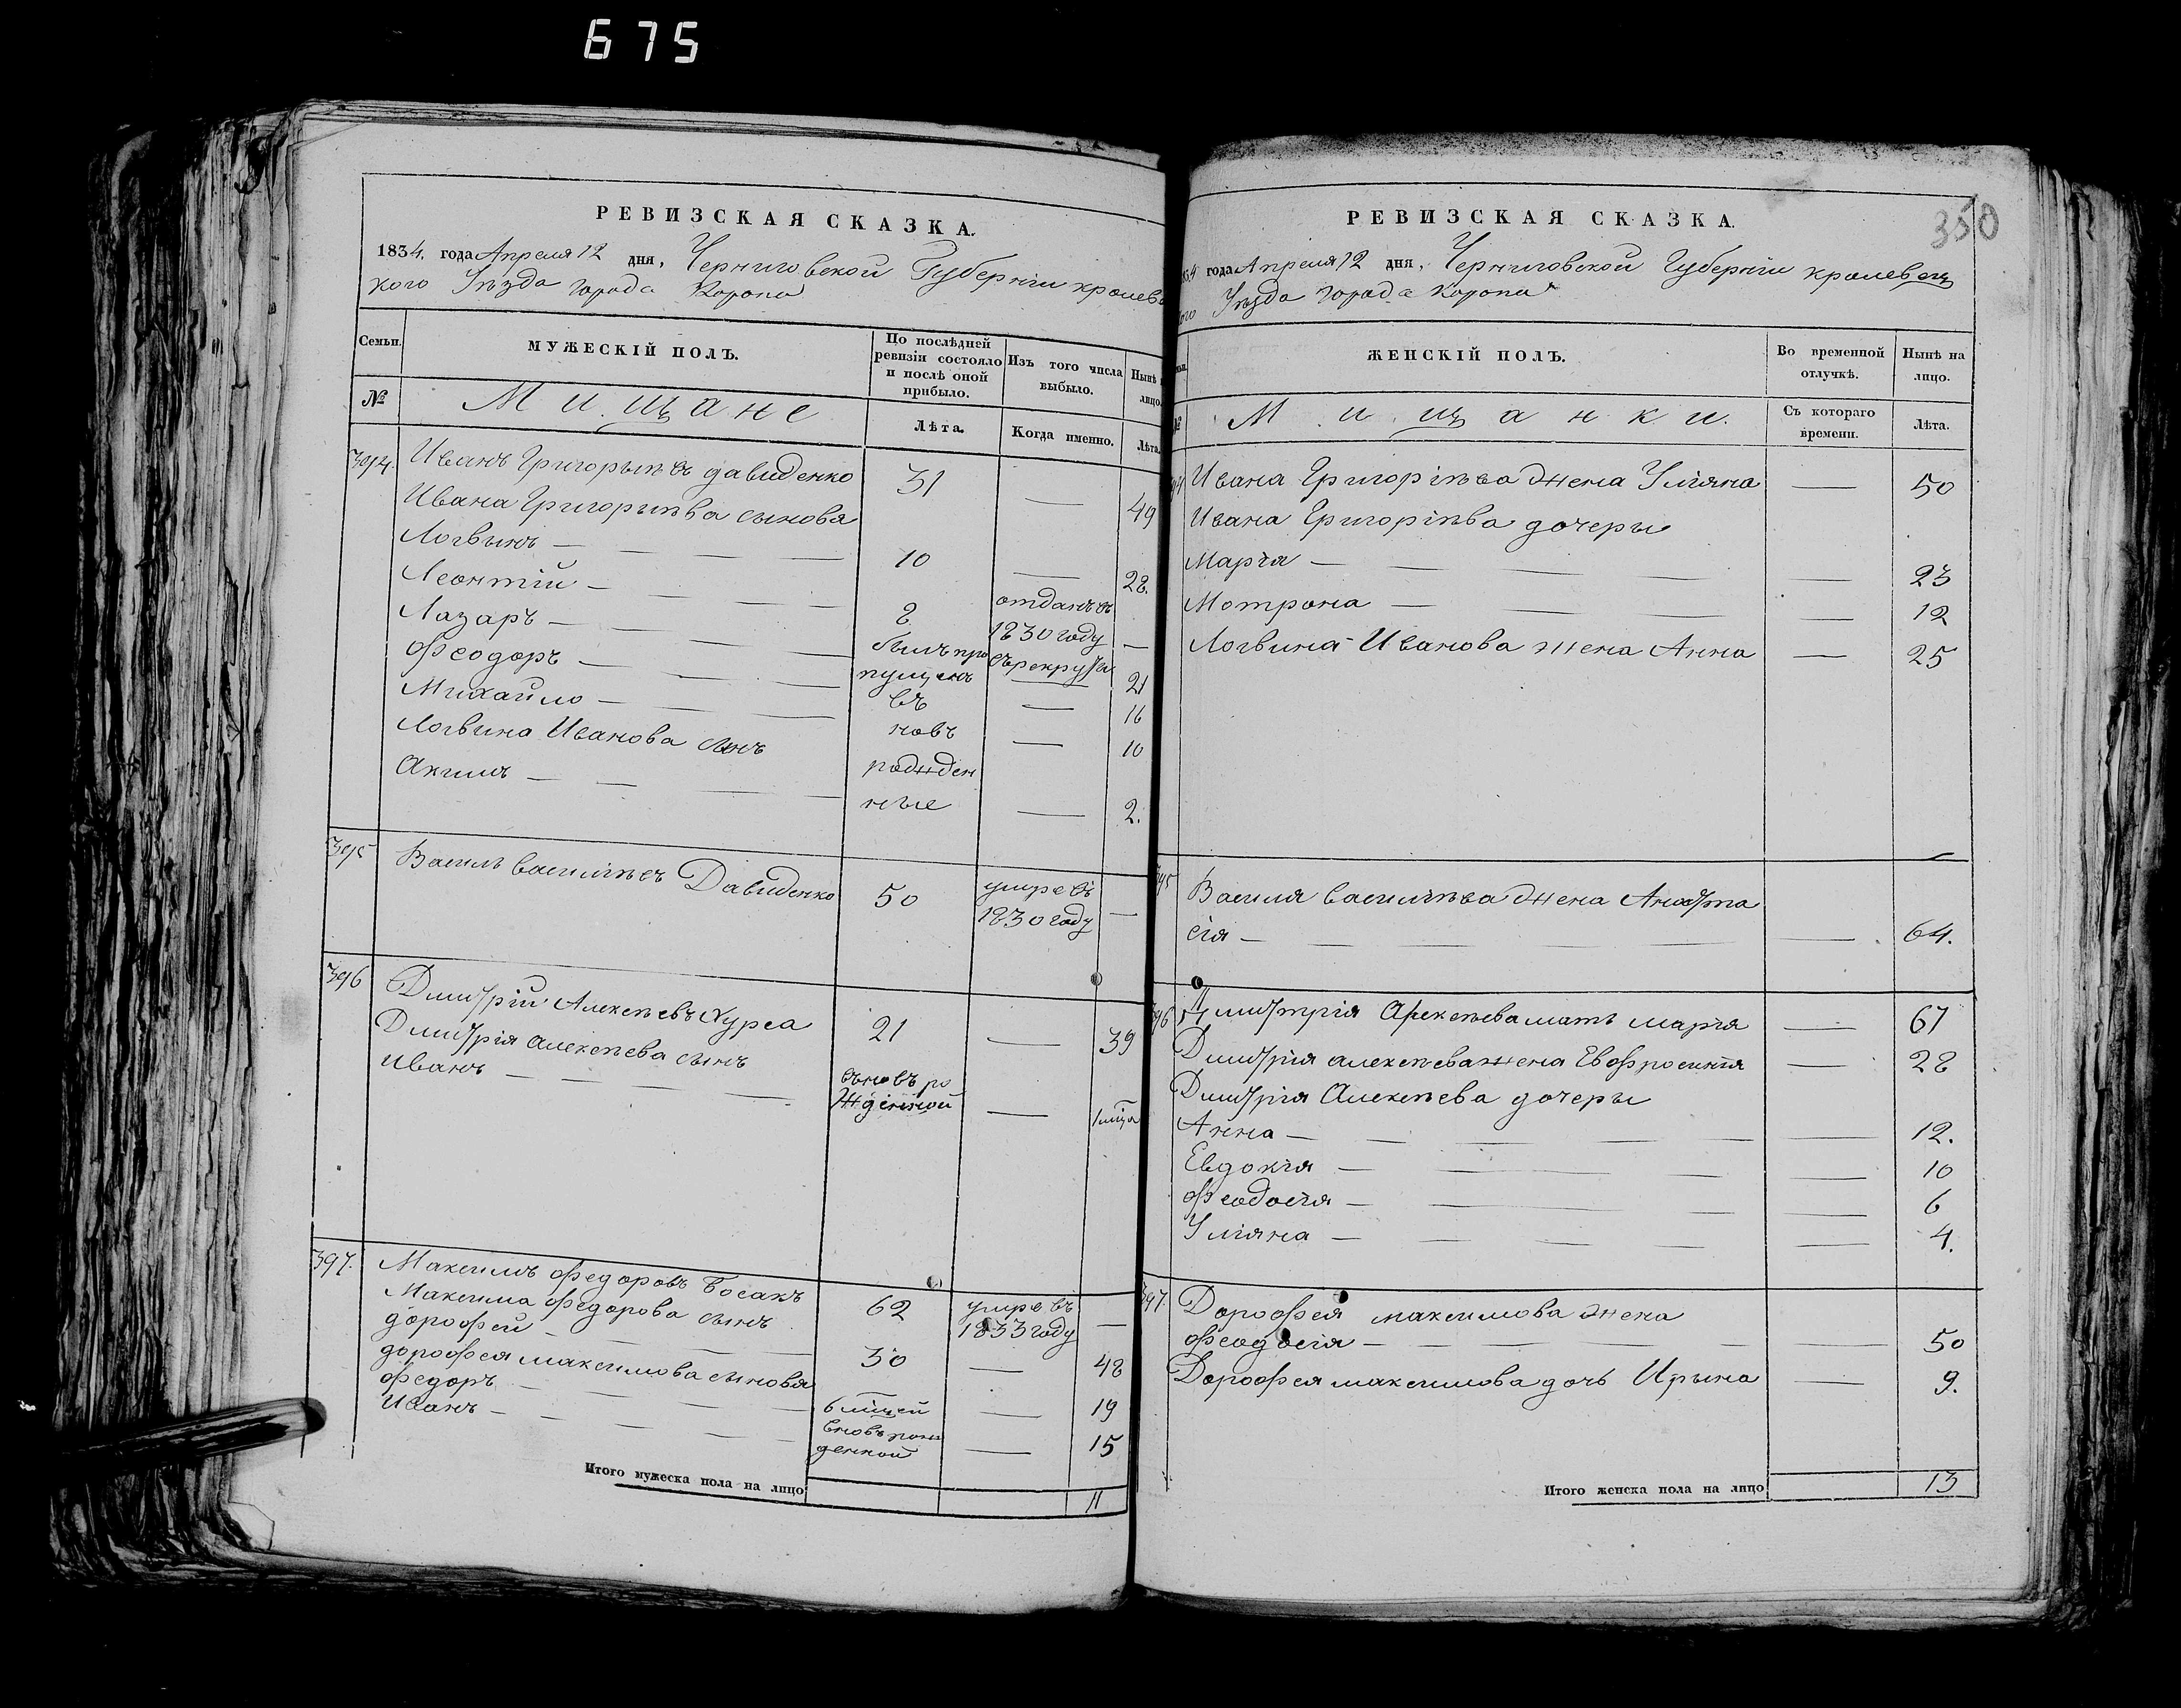 675
РЕВИЗСКАЯ СКАЗКА.
1834. года Апреля 12 дня, Черниговской Губерніи кролеве
кого Уѣзда города Коропа
Семьи.
МУЖЕСКІЙ ПОЛЪ.
По послѣдней ревизіи состояло и послѣ оной прибыло.
Изъ того числа выбыло.
Нынѣ лицо
№
Мищане
Лѣта.
Когда именно.
Лѣта.
394. Иванъ Григорьивъ Давиденко 31 — 49
Ивана Григорьива сынова
Логвынъ — 10 — 28.
Леонтій — 8 отданъ въ 1830 году въ рекруты —
Лазаръ — былъ про пущенъ — 21
Феодоръ — въ — 16
Михайло — новъ — 10
Логвина Иванова сынъ рожден
Акимъ — ные — 2.
395 Василь Васильевъ Давиденко 50 умре въ 1830 году —
396 Дмитрій Алексѣевъ Хурса 21 — 39
Дмитрія Алексѣева сынъ
Иванъ — вновъ ро жденной — 1 мца
397. Максимъ Федоровъ Босакъ 62 умре въ 1833 году —
Максима Федорова сынъ
Дорофей — 30 — 48
Дорофея Максимова сыновя
Федоръ — 6 мцей — 19
Иванъ — вновь рож денной — 15
Итого мужеска пола на лицо 11
350
РЕВИЗСКАЯ СКАЗКА.
1834 года Апреля 12 дня, Черниговской Губерніи кролевец
кого Уѣзда города Коропа
ЖЕНСКІЙ ПОЛЪ.
Во временной отлучкѣ.
Нынѣ на лицо.
№
Мищанки.
Съ котораго времени.
Лѣта.
394 Ивана Григоріева жена Уліяна — 50
Ивана Григоріева дочеры
Марія — 23
Мотрона — 12
Логвина Иванова жена Анна — 25
395 Василя Василіева жена Анаста
сія — 64.
396 Дмитрія Алексѣева мать Марія — 67
Дмитрія Алексѣева жена Евфросинія — 28
Дмитрія Алексѣева дочеры
Анна — 12.
Евдокія — 10
Феодосія — 6
Уліяна — 4.
397. Дорофея Максимова жена
Феодосія — 50
Дорофея Максимова дочь Ирына — 9.
Итого женска пола на лицо 13